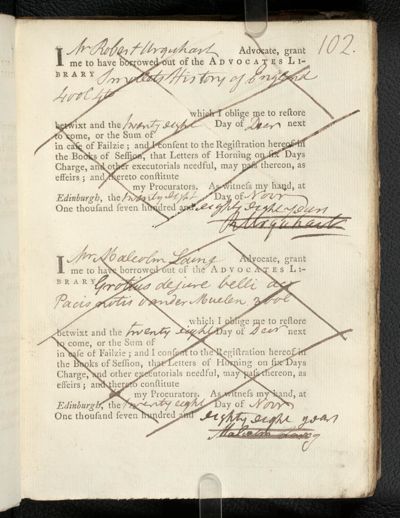 102.
I Mr Robert Urquhart Advocate, grant
me to have borrowed out of the ADVOCATES LI-
BRARY Smollets History of England
4 vol 4to
which I oblige me to reſtore
betwixt and the twenty eight Day of Decr next
to come, or the Sum of
in caſe of Failzie; and I conſent to the Regiſtration hereof in
the Books of Seſſion, that Letters of Horning on ſix Days
Charge, and other executorials needful, may paſs thereon, as
effeirs; and thereto conſtitute
my Procurators. As witneſs my hand, at
Edinburgh, the twenty eight Day of Novr
One thouſand ſeven hundred and eighty eight years
R Urquhart
I Mr Malcolm Laing Advocate, grant
me to have borrowed out of the ADVOCATES LI-
BRARY Grotius de jure belli ac
Pacis notis vander Muelen
which I oblige me to reſtore
betwixt and the twenty eight Day of Decr next
to come, or the Sum of
in caſe of Failzie; and I conſent to the Regiſtration hereof in
the Books of Seſſion, that Letters of Horning on ſix Days
Charge, and other executorials needful, may paſs thereon, as
effeirs; and thereto conſtitute
my Procurators. As witneſs my hand, at
Edinburgh, the twenty eight Day of Novr
One thouſand ſeven hundred and eighty eight years
Malcolm Laing